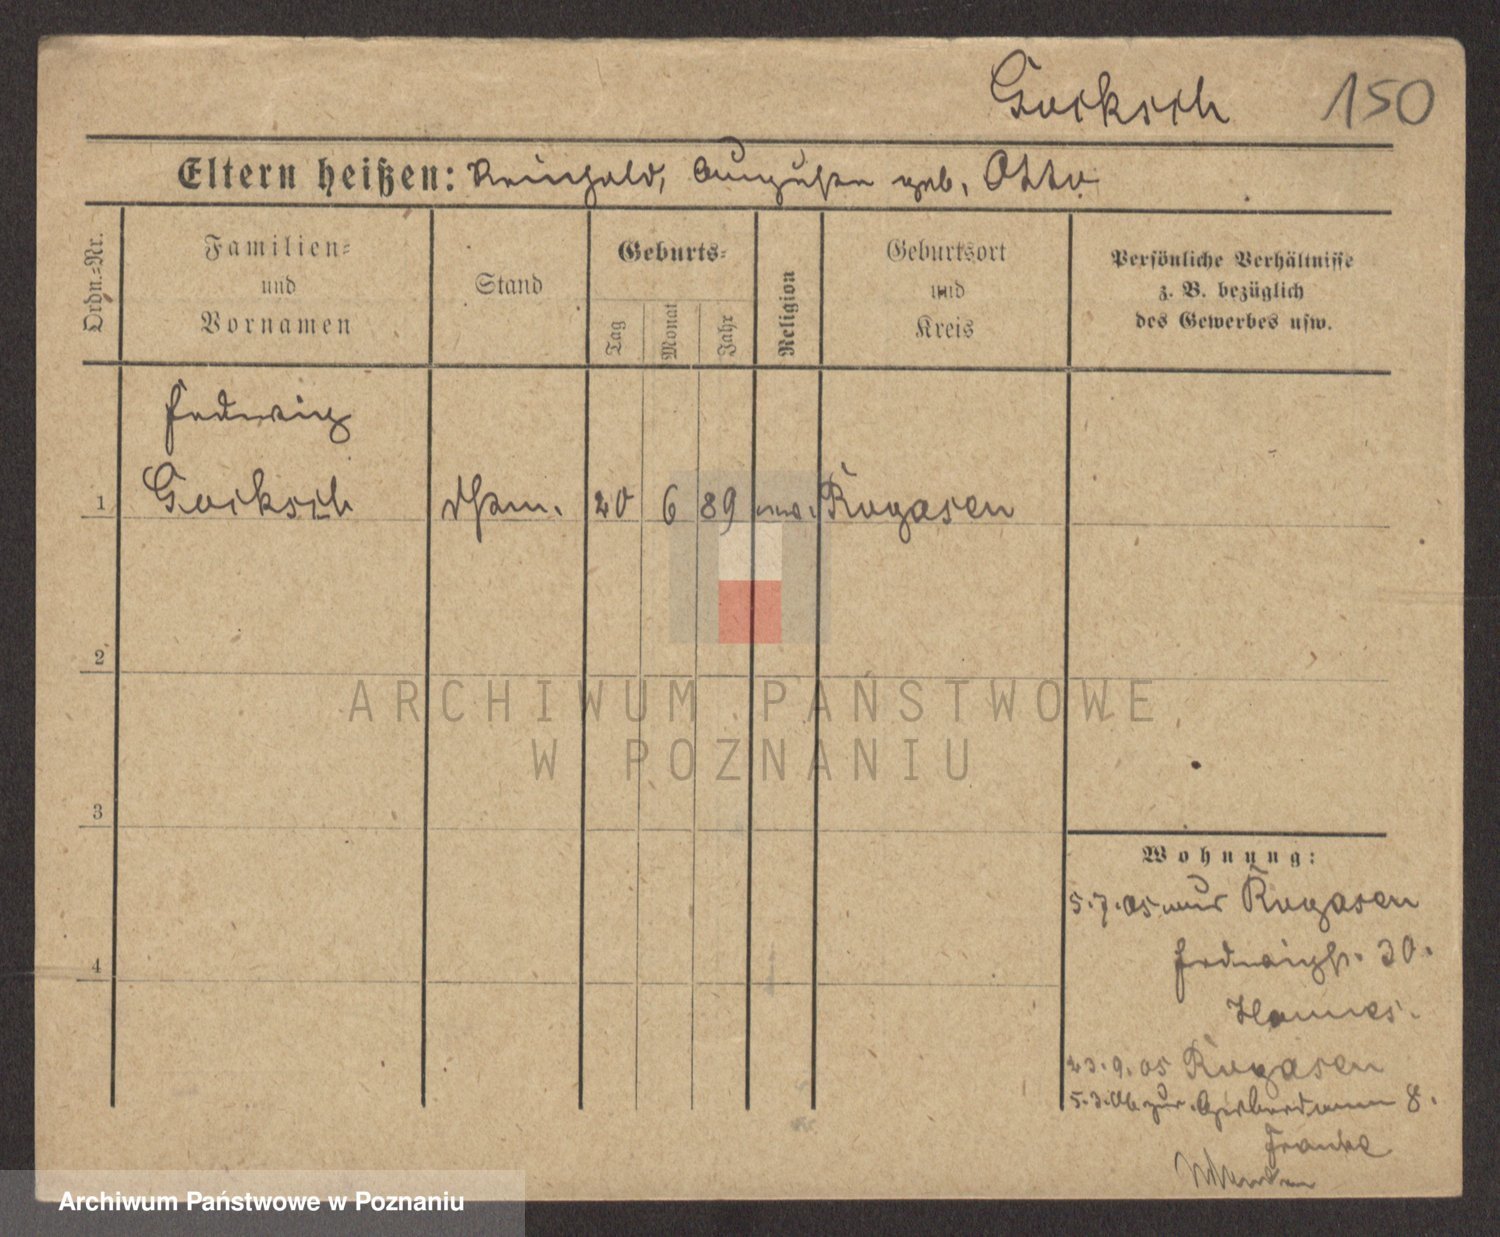 Gocksch 150
Eltern heißen: Reinhold, Auguste geb. Otto
Ordn.-Nr.
Familien-
und
Vornamen
Stand
Geburts-
Tag
Monat
Jahr
Religion
Geburtsort
und
Kreis
Persönliche Verhältnisse
z. B. bezüglich
des Gewerbes usw.
Hedwig
1 Gocksch 20 6 89 Rogasen
2
3
4
Wohnung:
5.7.05 Rogasen
Hedwigstr. 30.
23.9.05 Rogasen
5.3.06 8.
Franke
ARCHIWUM PAŃSTWOWE
W POZNANIU
Archiwum Państwowe w Poznaniu